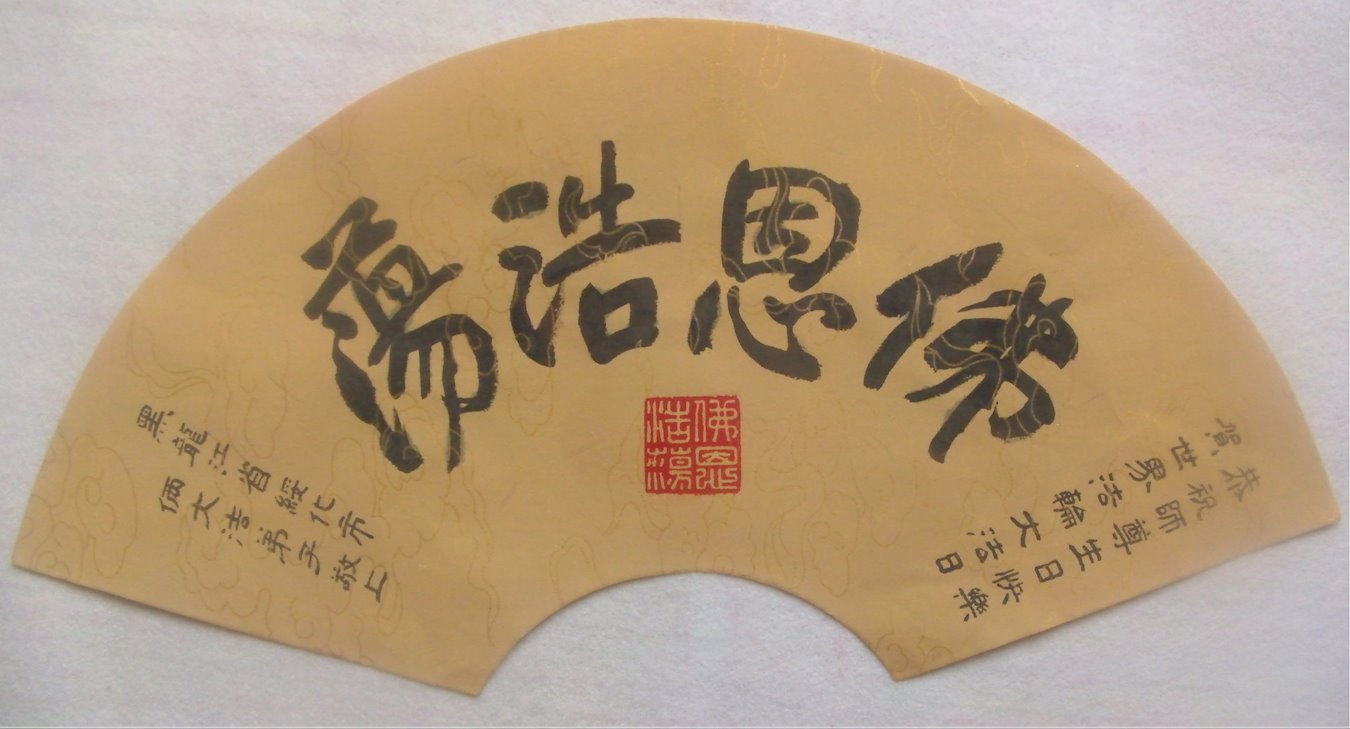 恭祝師尊生日快樂
賀世界法輪大法日
佛恩浩蕩
佛恩
浩蕩
黑龍江省綏化市
倆大法弟子敬上